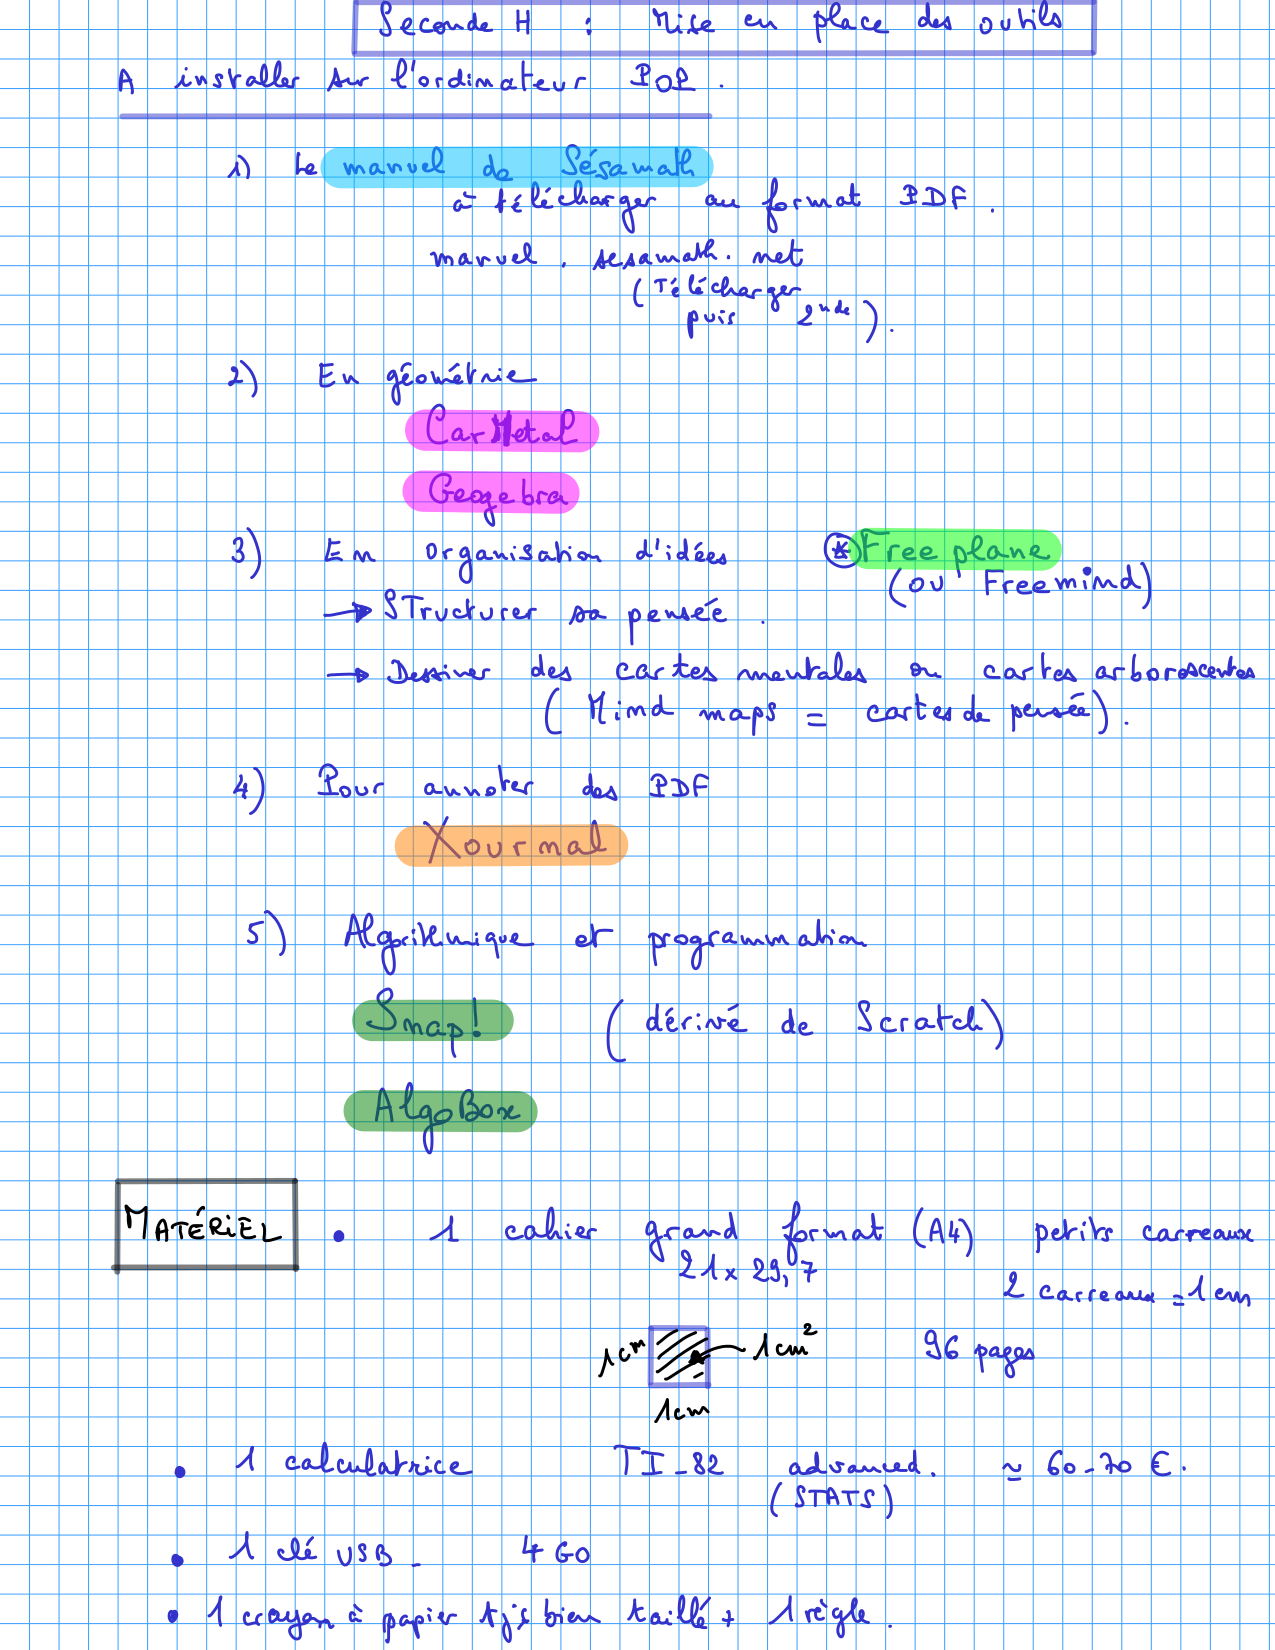 Seconde H : Mise en place des outils
A installer sur l'ordinateur POP.
1) Le manuel de Sésamath
à télécharger au format PDF.
manuel.sesamath.net
(Télécharger
puis 2nde).
2) En géométrie
CarMetal
Geogebra
3) En organisation d'idées * Freeplane
(ou Freemind)
→ Structurer sa pensée.
→ Dessiner des cartes mentales ou cartes arborescentes
(Mind maps = cartes de pensée).
4) Pour annoter des PDF
Xournal
5) Algorithmique et programmation
Snap! (dérivé de Scratch)
AlgoBox
MATÉRIEL • 1 cahier grand format (A4) petits carreaux
21 x 29,7
2 carreaux = 1 cm
1cm 1cm² 96 pages
1cm
• 1 calculatrice TI-82 advanced. ≃ 60-70 €.
(STATS)
• 1 clé USB - 4 GO
• 1 crayon à papier tjs bien taillé + 1 règle.